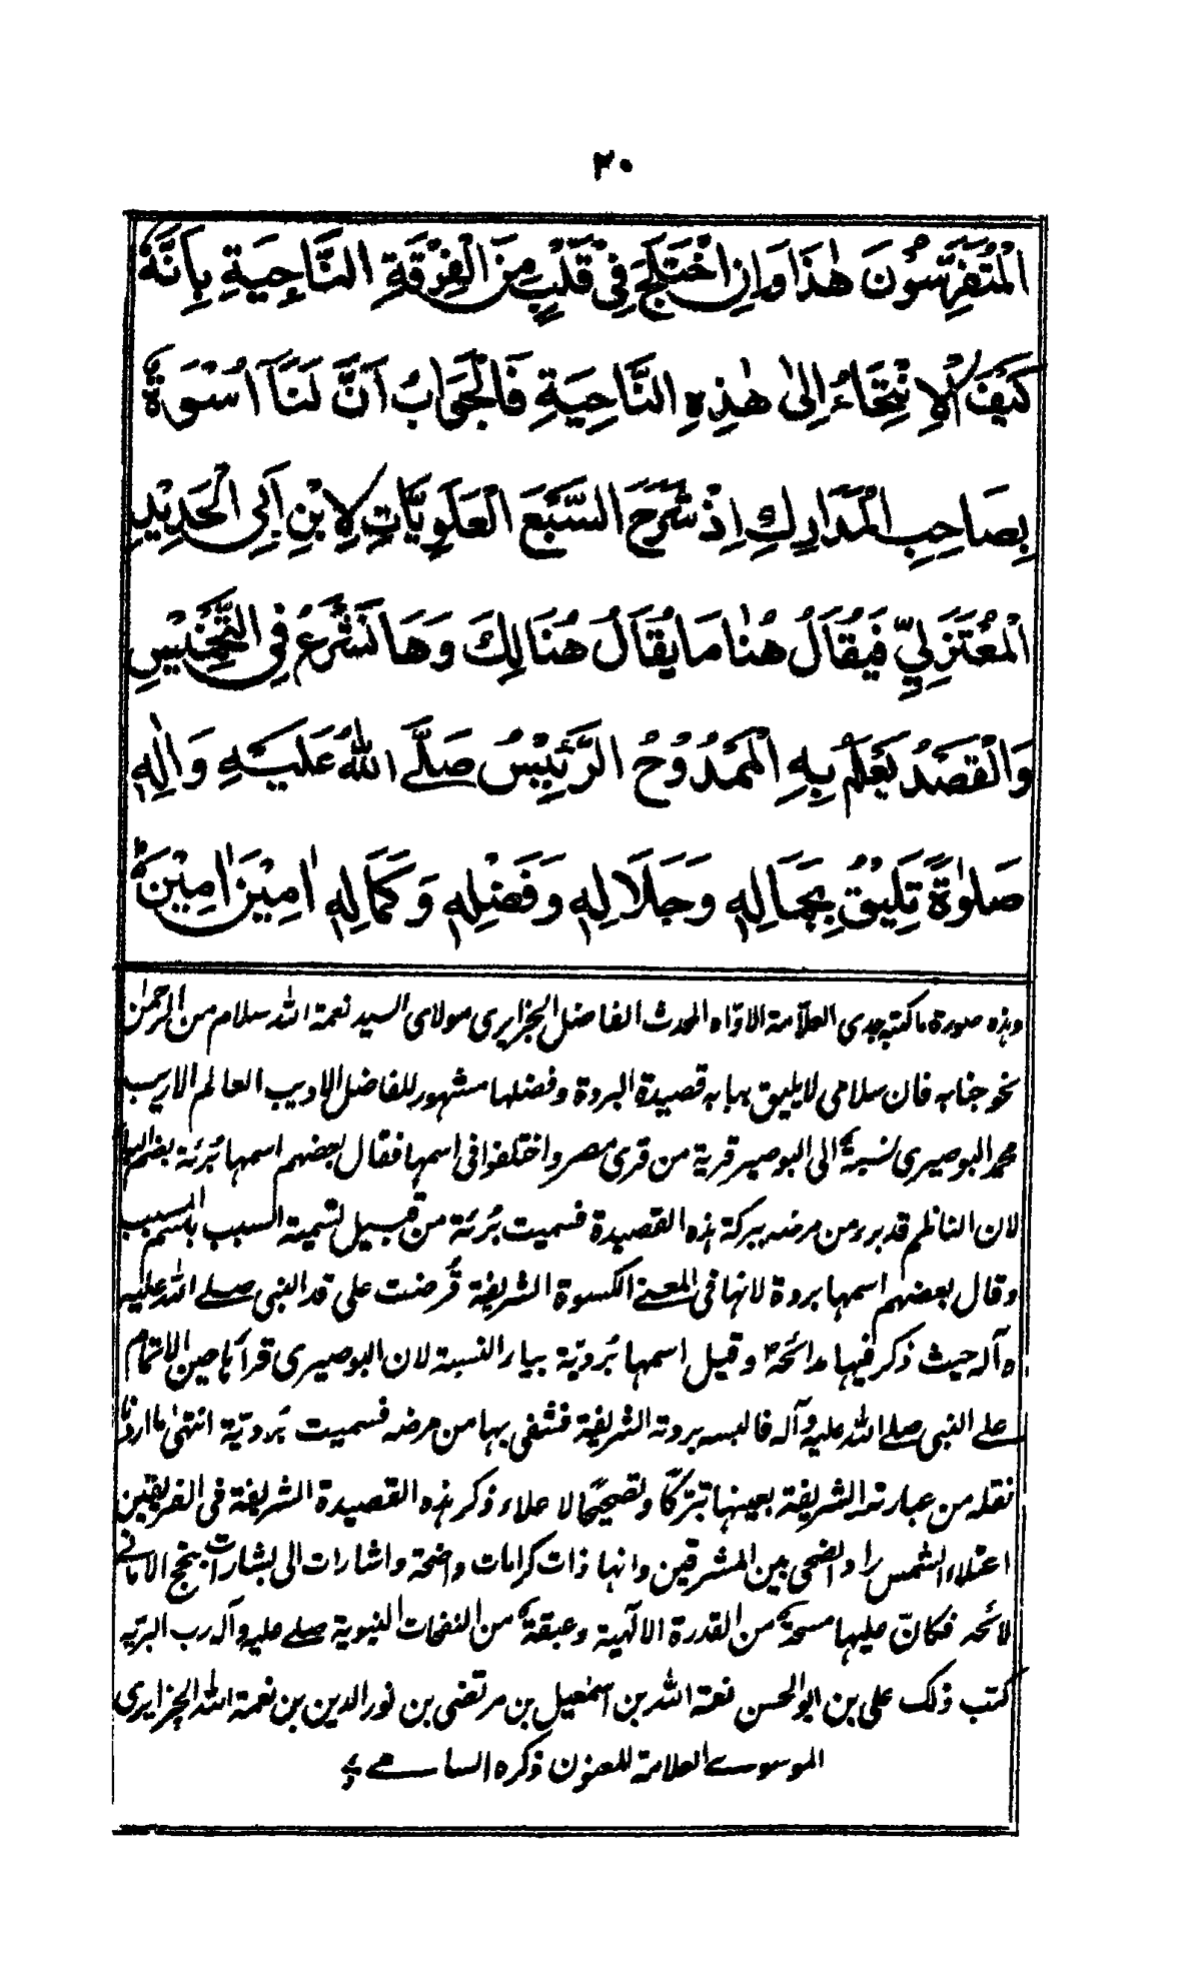 ٣٠
اَلْمُتَفَرِّسُوْنَ هٰذَا وَاِنِ اخْتَلَجَ فِىْ قَلْبٍ مِنَ الْفِرْقَةِ النَّاجِيَةِ بِاَنَّهٗ
كَيْفَ الْاِنْتِحَاءُ اِلٰى هٰذِهِ النَّاحِيَةِ فَالْجَوَابُ اَنَّ لَنَا اُسْوَةً
بِصَاحِبِ الْمَدَارِكِ اِذْ شَرَحَ السَّبْعَ الْعَلَوِيَّاتِ لِابْنِ اَبِى الْحَدِيْدِ
الْمُعْتَزِلِيِّ فَيُقَالُ هُنَا مَا يُقَالُ هُنَالِكَ وَهَا نَشْرَعُ فِى التَّخْمِيْسِ
وَالْقَصْدُ يَعْلَمُ بِهِ الْمَمْدُوْحُ الرَّئِيْسُ صَلَّے اللهُ عَلَيْهِ وَاٰلِهٖ
صَلٰوةً تَلِيْقُ بِجَمَالِهٖ وَجَلَالِهٖ وَفَضْلِهٖ وَكَمَالِهٖ اٰمِيْنَ اٰمِيْنَ
وہذہ صورة ما كتبہ جدى العلّامة الاوّاہ المحدث الفاضل الجزايرى مولاى السيد نعمة اللہ سلام من الرحمٰن
نحو جنابہ فان سلامى لا يليق ببابہ قصيدة البردة وفضلها مشهور للفاضل الاديب العالم الاريب
محمد البوصيرى نسبةً الى البوصير قرية من قرى مصر واختلفوا فى اسمها فقال بعضهم اسمها بُرئة بضم البا
لان الناظم قد برء من مرضہ ببركة ہذہ القصيدة فسميت بُرئة من قبيل تسمية السبب باسم المسبب
وقال بعضهم اسمها بردة لانها فى المعنے الكسوة الشريفة قُرضت على قد النبى صلے اللہ عليہ
وآلہ حيث ذكر فيها مدائحہ وقيل اسمها بُرديّة بياء النسبة لان البوصيرى قرأہا حين الاتمام
علے النبى صلے اللہ عليہ وآلہ فالبسہ بردتہ الشريفة فشفى بها من مرضہ فسميت بُرديّة انتهىٰ ما اردنا
نقلہ من عبارتہ الشريفة بعينها تبرّكًا وتصحيحًا لا علاء ذكر ہذہ القصيدة الشريفة فى الفريقين
اعتلاء الشمس راد الضحى بين المشرقين وانها ذات كرامات واضحة واشارات الى بشارات بنجح الامانے
لائحہ فكانّ عليها مسحةً من القدرة الالٓهية وعبقةً من النفحات النبوية صلے عليہ وآلہ رب البريّہ
كتب ذلك على بن ابو الحسن نعمة اللہ بن اسمٰعيل بن مرتضى بن نور الدين بن نعمة اللہ الجزايرى
الموسوے العلامة المعنون ذكرہ السامے